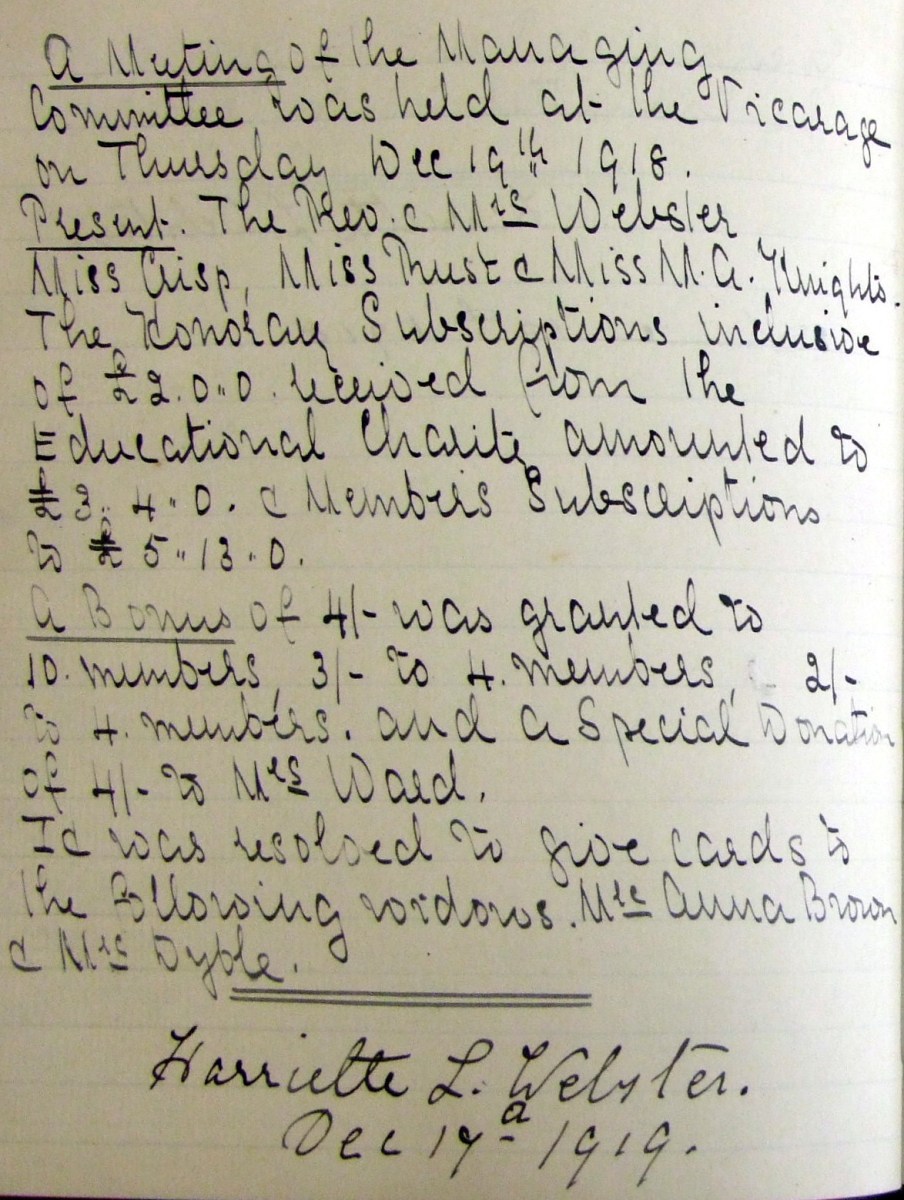 A Meeting of the Managing
Committee was held at the Vicarage
on Thursday Dec 19th 1918.
Present. The Rev. & Mrs Webster
Miss Crisp, Miss Rust & Miss M. A. Knights.
The Honorary Subscriptions inclusive
of £2.0.0. received from the
Educational Charity amounted to
£3. 4. 0. & Members Subscriptions
to £5. 13. 0.
A Bonus of 4/- was granted to
10. members, 3/- to 4. members, 2/-
to 4. members. and a Special Donation
of 4/- to Mrs Ward.
It was resolved to give cards to
the following widows. Mrs Anna Brown
& Mrs Dyble.
Harriette L. Webster.
Dec 1919.